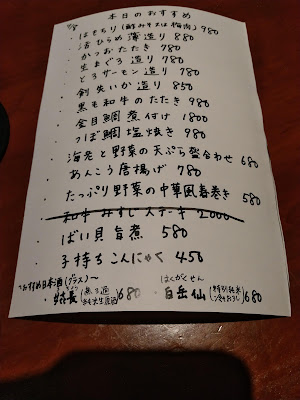 本日のおすすめ
・はもちり(酢みそ又は梅肉) 980
・活ひらめ薄造り 880
・かつおたたき 780
・生まぐろ造り 780
・とろサーモン造り 780
・剣先いか造り 850
・黒毛和牛のたたき 980
・金目鯛煮付け 1800
・つぼ鯛塩焼き 980
・海老と野菜の天ぷら盛合わせ 680
・あんこう唐揚げ 780
・たっぷり野菜の中華風春巻き 580
・和牛みすじステーキ 2000
・ばい貝旨煮 580
・子持ちこんにゃく 450
おすすめ日本酒(グラス)〜
長 680
はくがくせん
・白岳仙 (特別純米 ひやおろし) 680